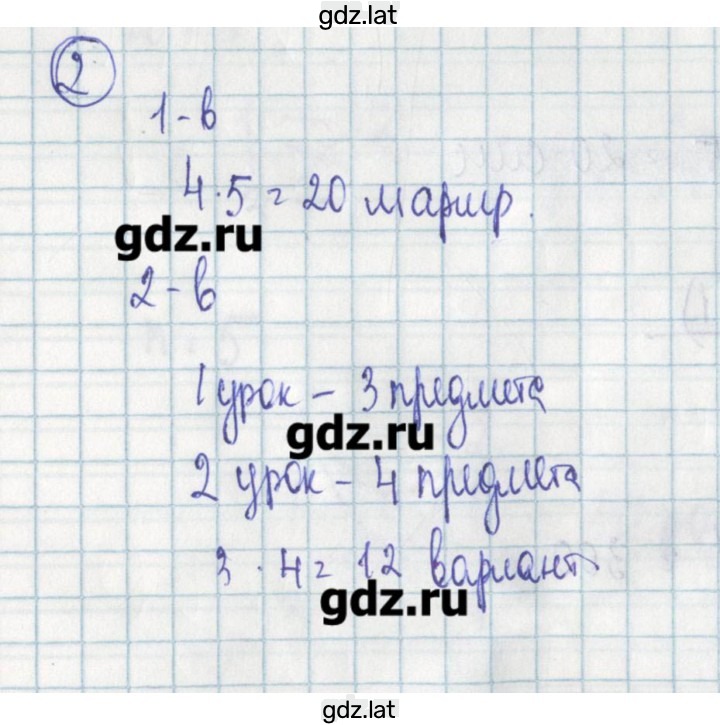 gdz.lat
2
1-в
4·5=20 маршр.
gdz.ru
2-в
1 урок - 3 предмета
gdz.ru
2 урок - 4 предмета
3·4=12 вариант
gdz.ru
gdz.lat